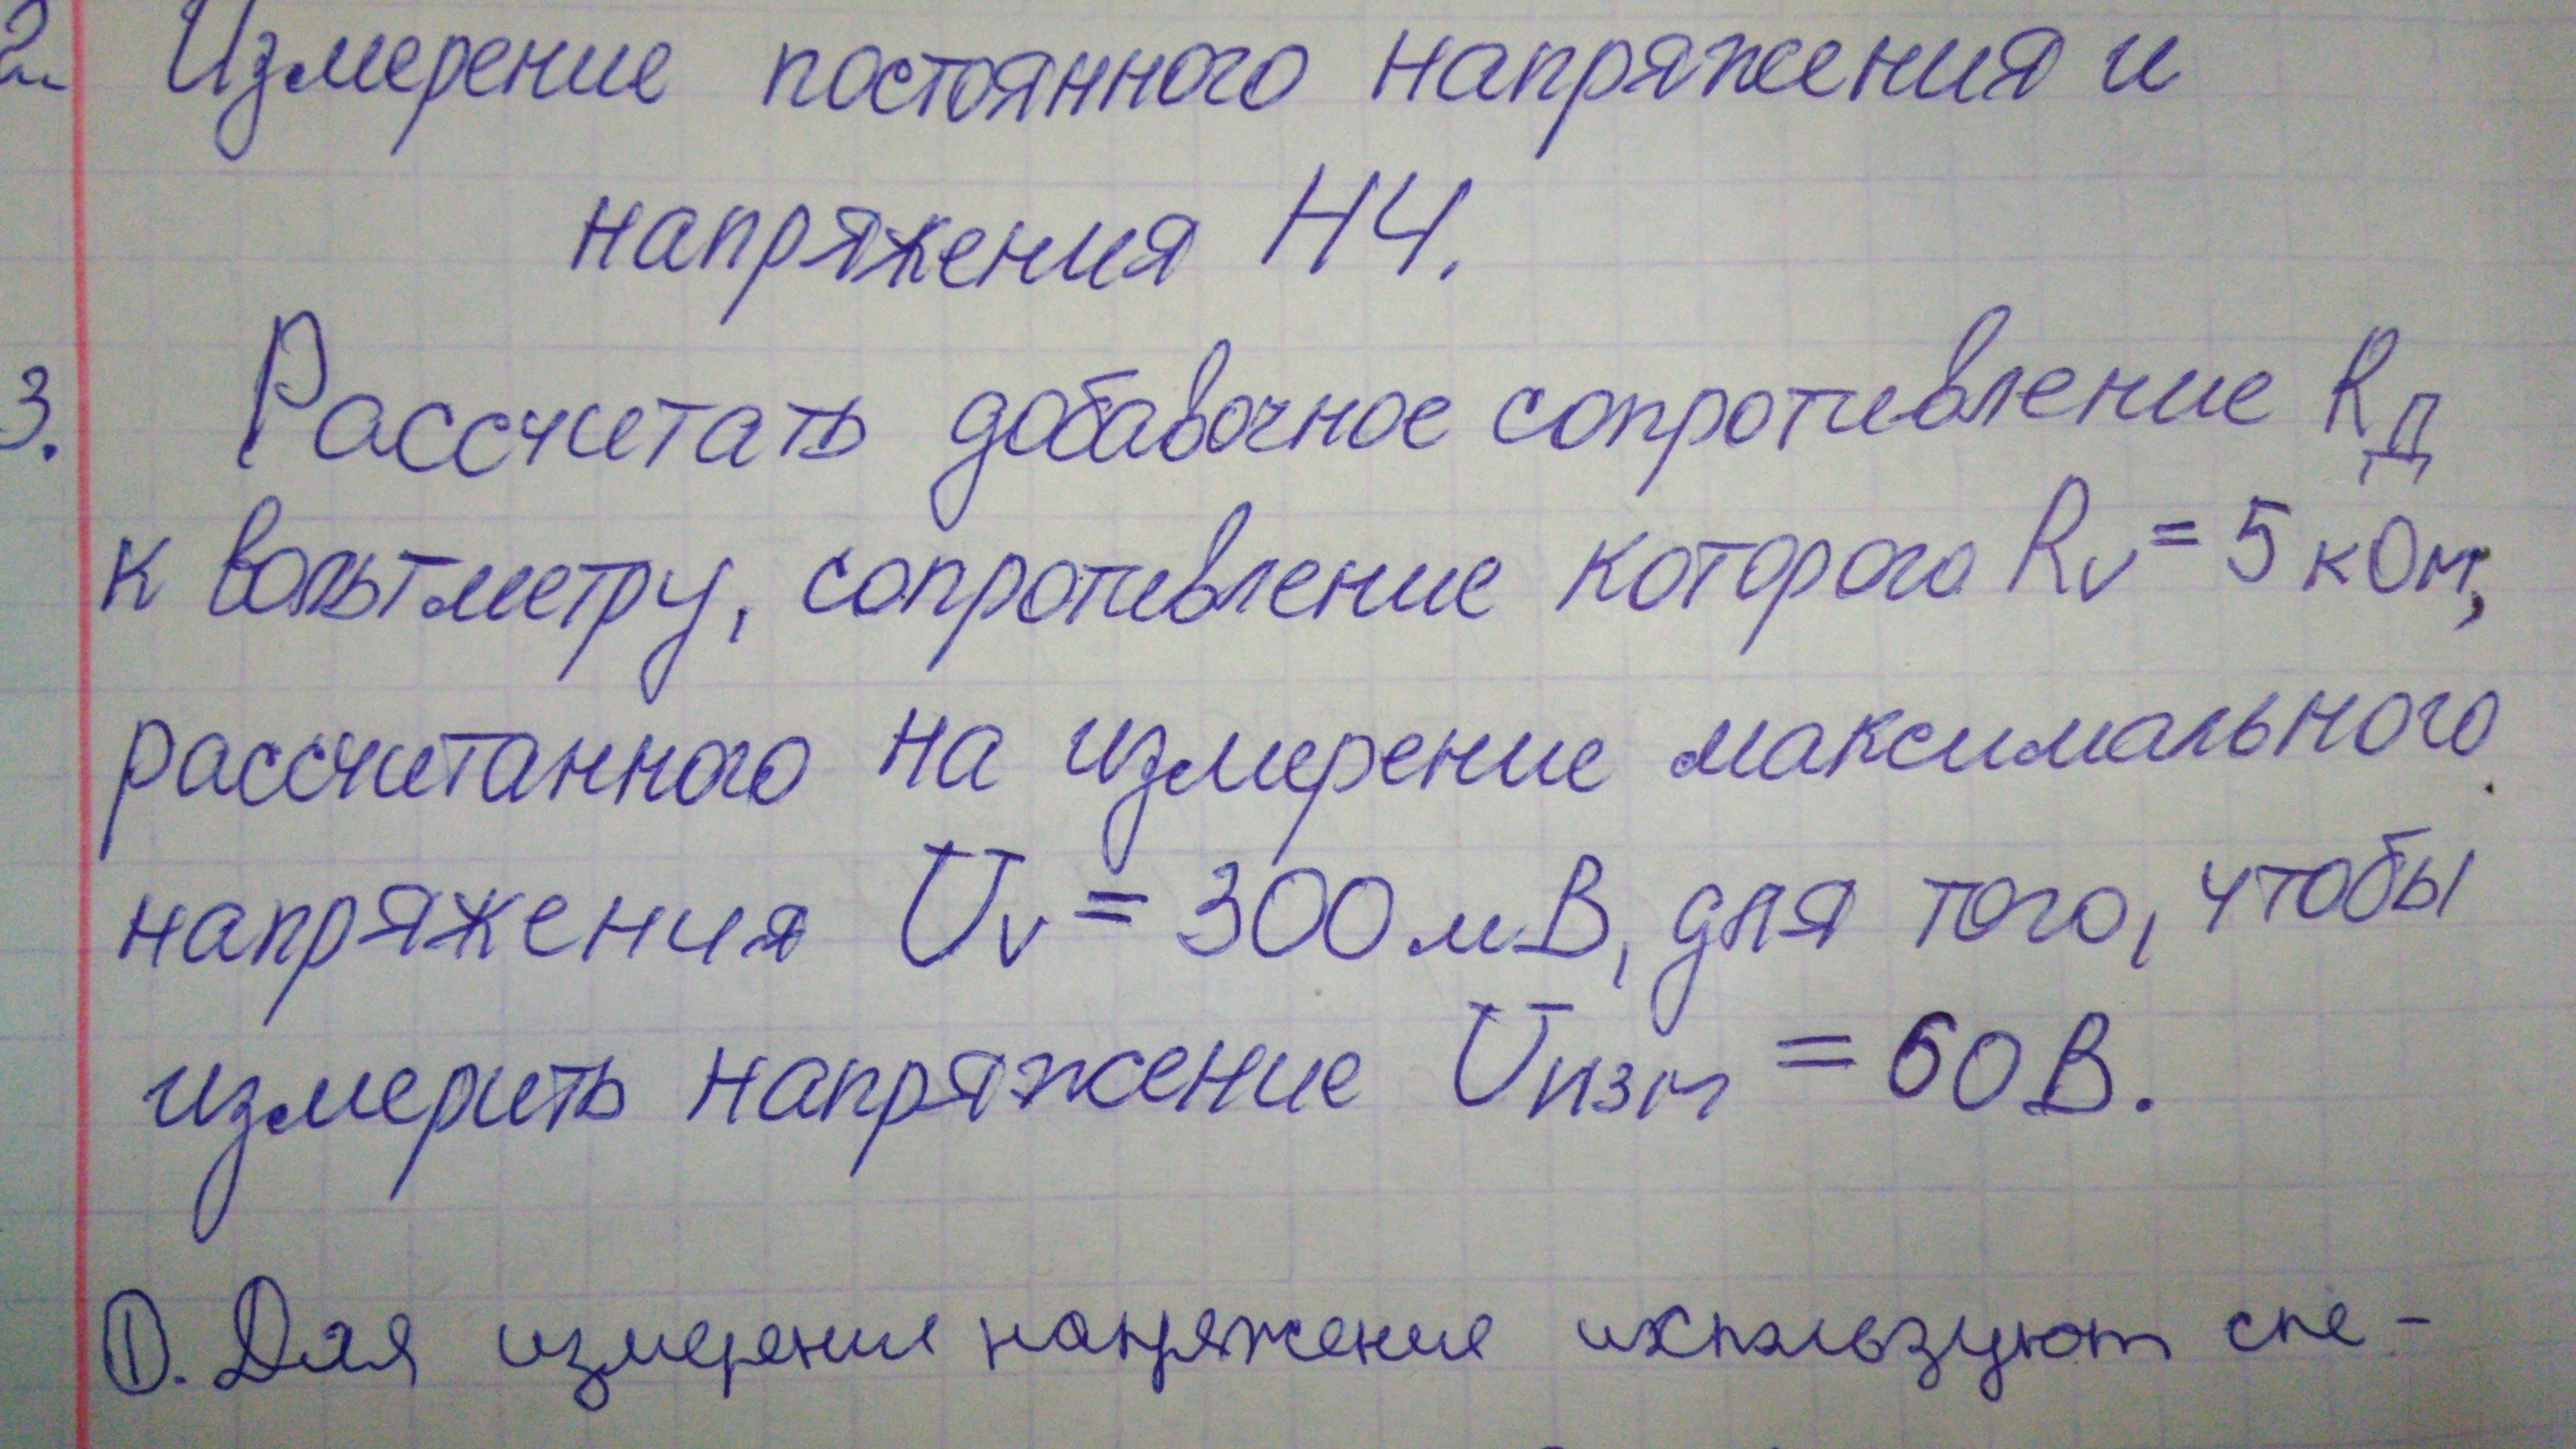 2. Измерение постоянного напряжения и
напряжения НЧ.
3. Рассчитать добавочное сопротивление Rд
к вольтметру, сопротивление которого Rv = 5 кОм,
рассчитанного на измерение максимального
напряжения Uv = 300 мВ, для того, чтобы
измерить напряжение Uизм = 60 В.
①. Для измерения напряжение используют спе-